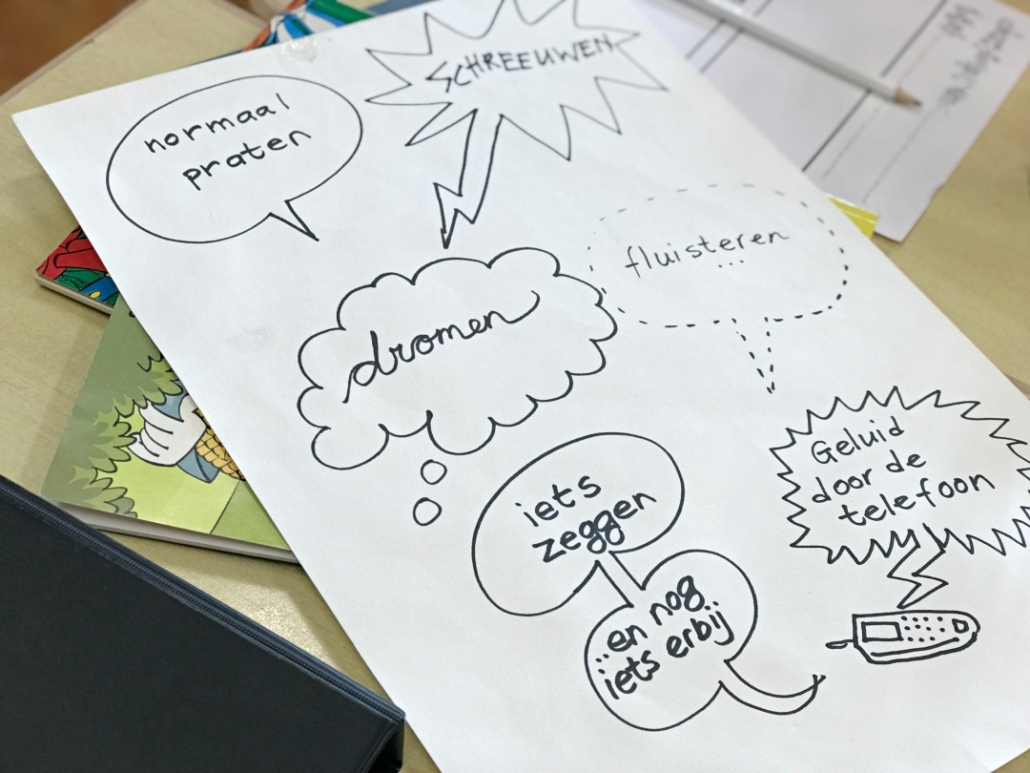 normaal
praten
SCHREEUWEN
fluisteren
...
dromen
Geluid
door de
telefoon
iets
zeggen
..en nog
iets erbij